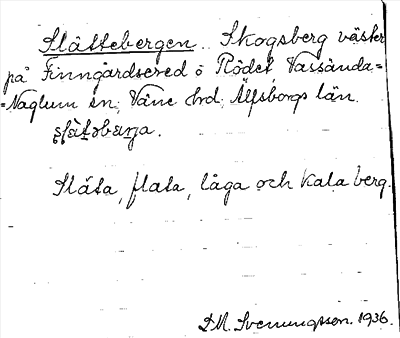 Slättebergen. Skogsberg väster
på Finngårdsered å Rödet, Vassända=
=Naglum sn, Väne hd, Älfsborgs län.
Släta, flata, låga och kala berg.
D.M. Svenungsson. 1936.